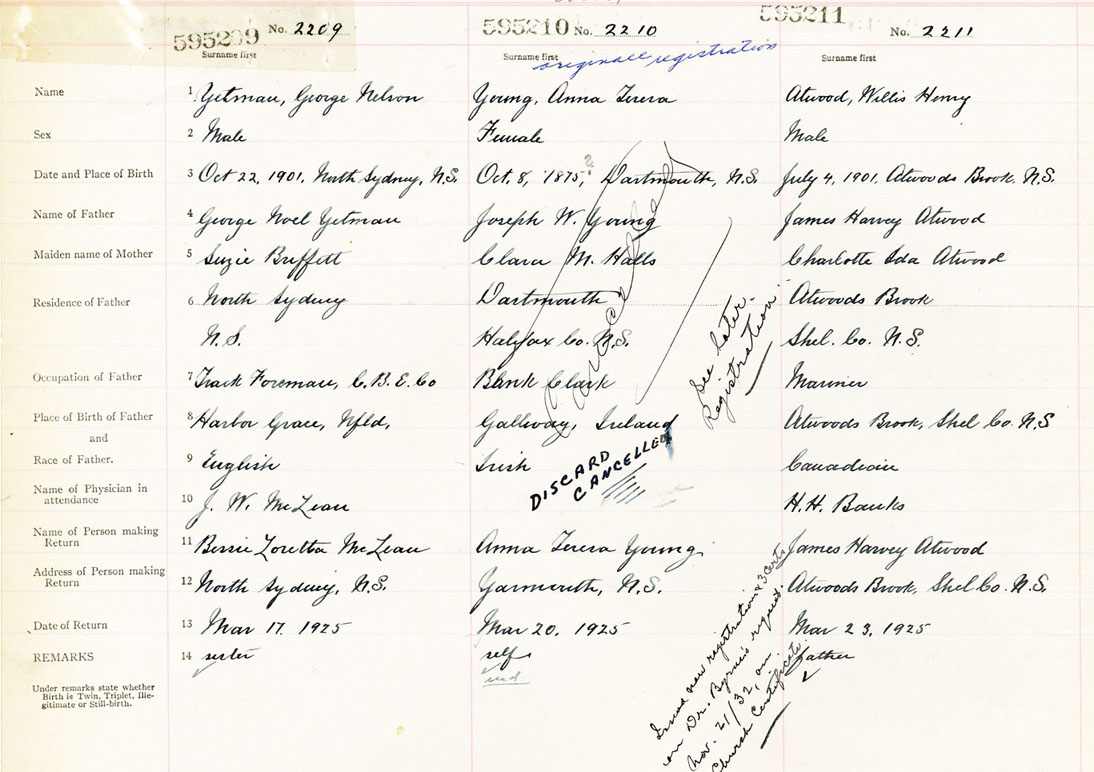 595209 No. 2209 595210 No. 2210 595211 No. 2211
Surname first Surname first Surname first
originall registration
Name 1 Yetman, George Nelson Young, Anna Teresa Atwood, Willis Henry
Sex 2 Male Female Male
Date and Place of Birth 3 Oct 22, 1901, North Sydney, N.S. Oct. 8, 1875, ? Dartmouth, N.S. July 4, 1901, Atwoods Brook. N.S.
Name of Father 4 George Noel Yetman Joseph W. Young James Harvey Atwood
Maiden name of Mother 5 Suzie Buffett Clara M. Halls Charlotte Ida Atwood
Residence of Father 6 North Sydney Dartmouth Atwoods Brook
N.S. Halifax Co. N.S. Shel. Co. N.S.
Cancelled
See later
Registration.
Occupation of Father 7 Track Foreman, C.B.E. Co Bank Clark Mariner
Place of Birth of Father 8 Harbor Grace, Nfld, Gallway, Ireland Atwoods Brook, Shel Co. N.S
and
Race of Father. 9 English Irish Canadian
DISCARD
CANCELLED
Name of Physician in
attendance 10 J. W. McLean H.H. Banks
Name of Person making
Return 11 Bessie Loretta McLean Anna Teresa Young James Harvey Atwood
Address of Person making
Return 12 North Sydney, N.S. Yarmouth, N.S. Atwoods Brook, Shel Co. N.S.
Date of Return 13 Mar 17. 1925 Mar 20. 1925 Mar 23, 1925
REMARKS 14 sister self father
Under remarks state whether
Birth is Twin, Triplet, Ille-
gitimate or Still-birth.
Issued new registration & 3 certs.
on Dr. Byrne's request.
Nov. 21/32, on
Church Certificate.